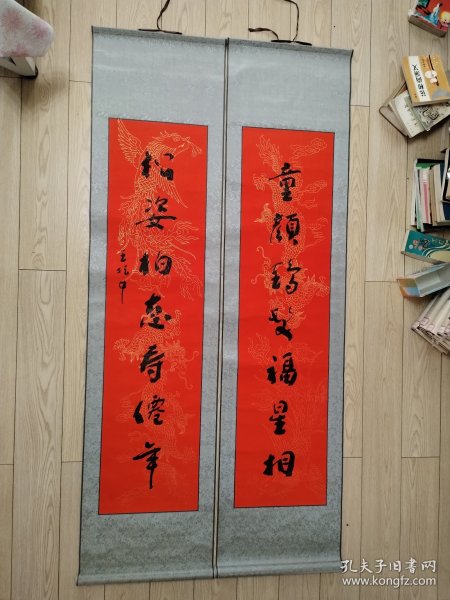 童顏鹤发福星相
松姿柏态寿僊年
孔夫子旧书网
www.kongfz.com